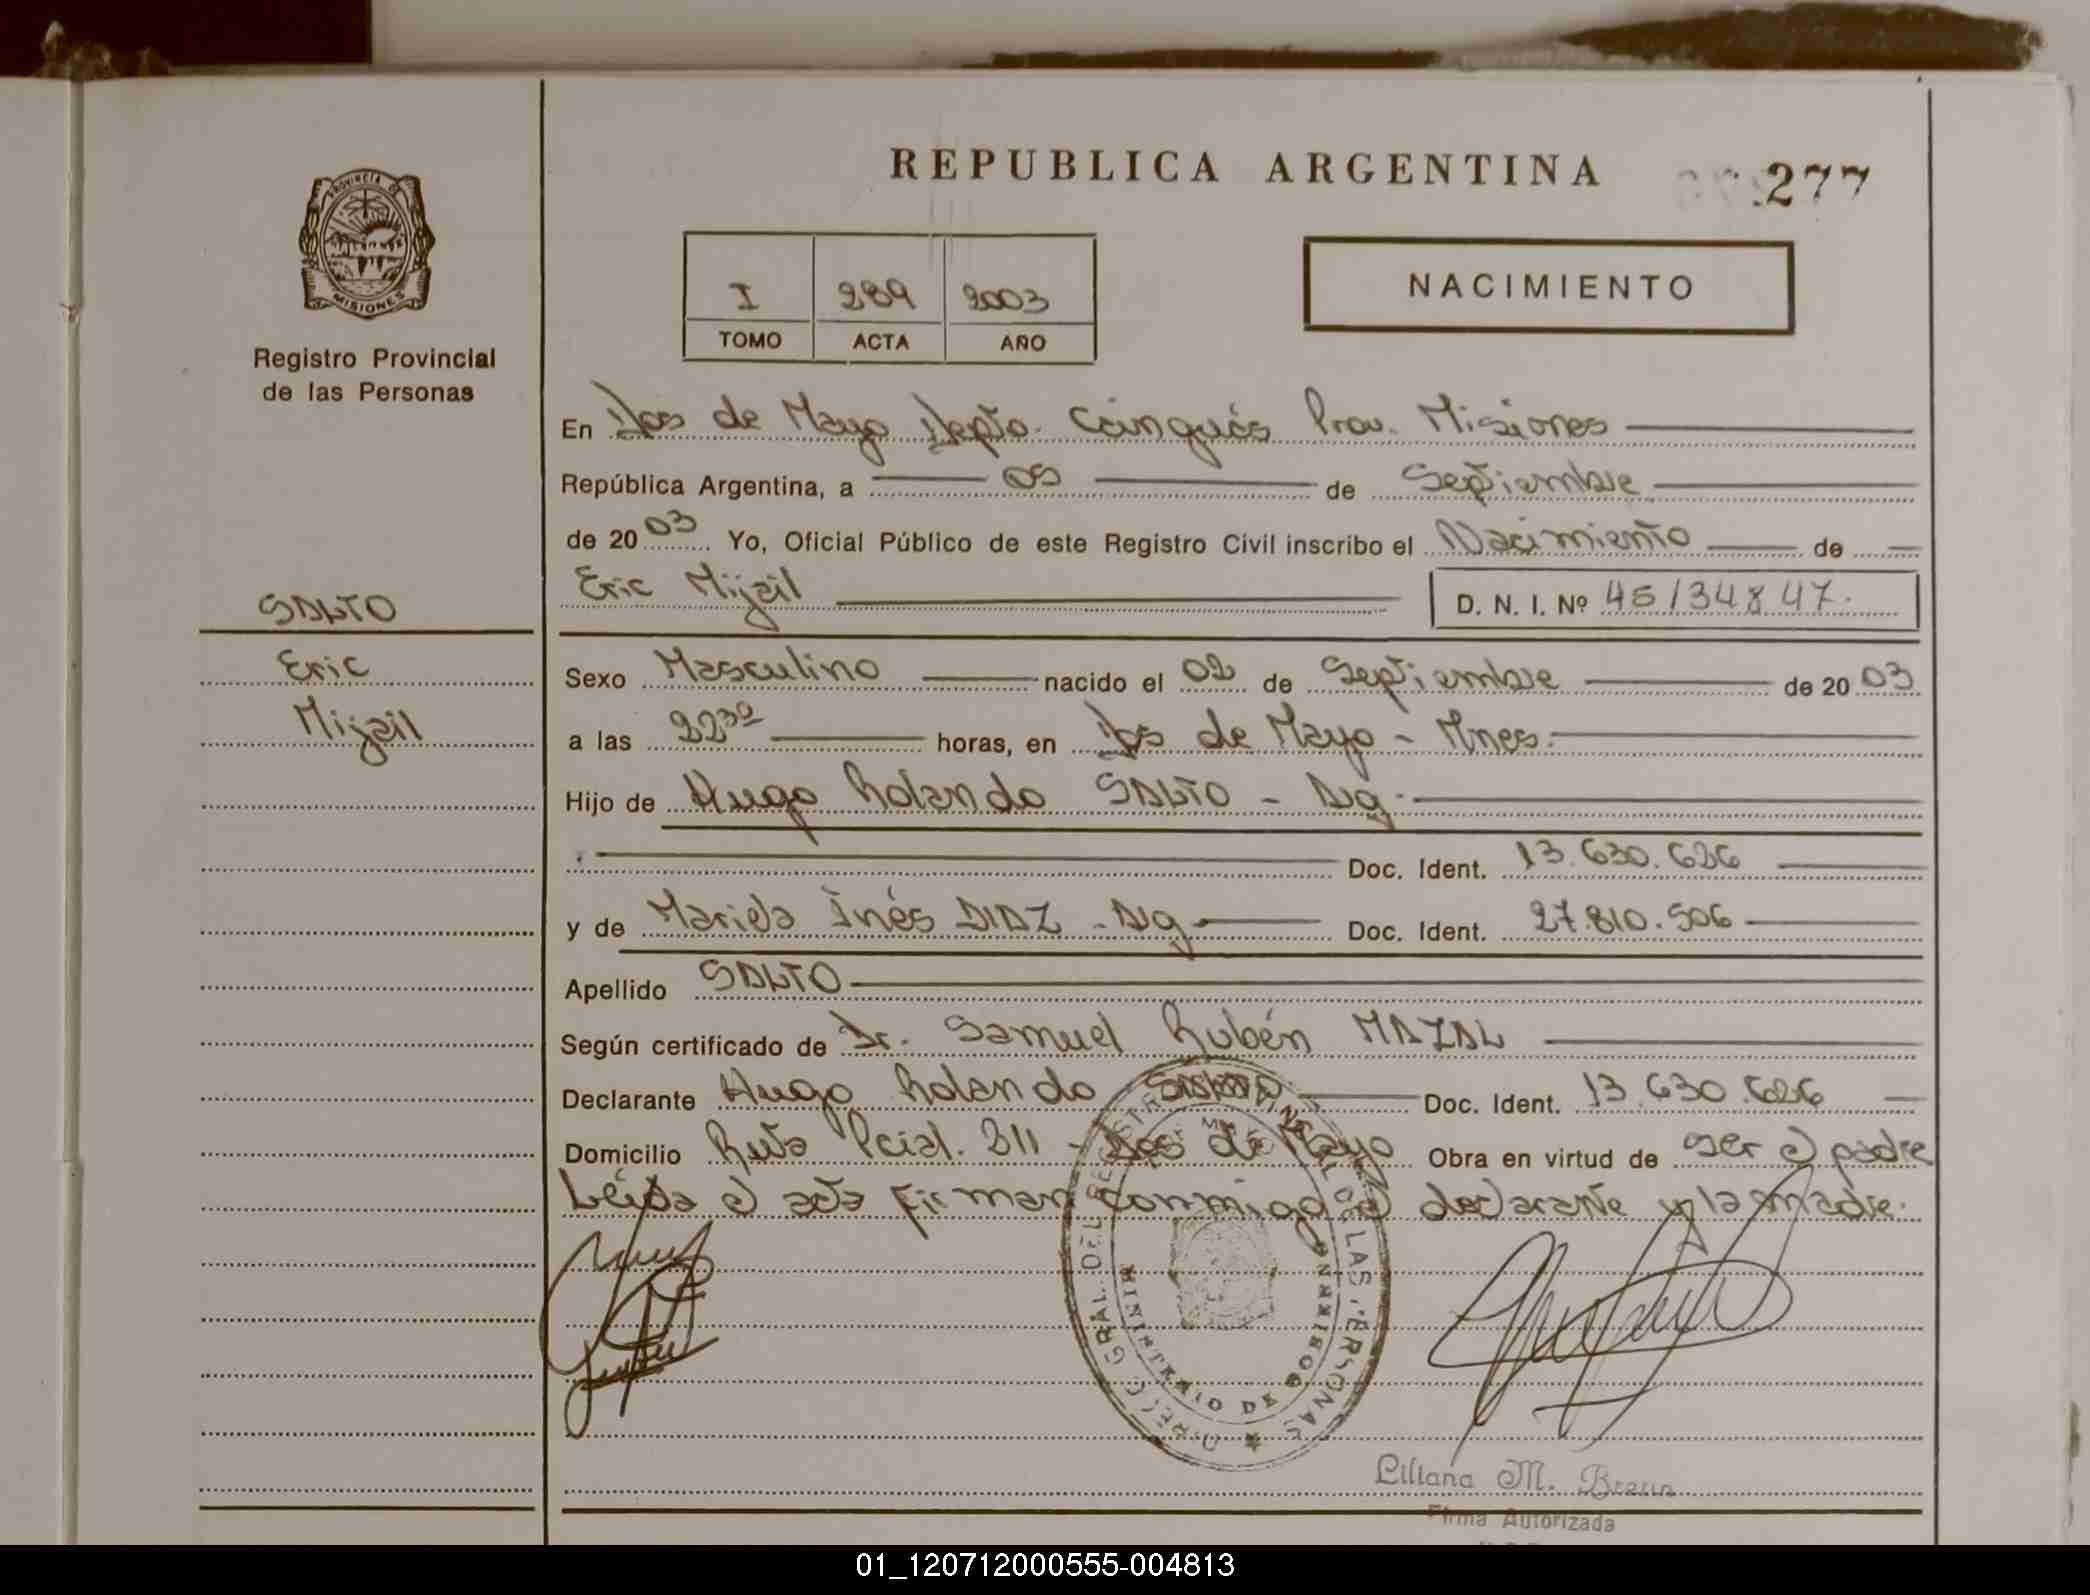 REPUBLICA ARGENTINA
277
PROVINCIA DE
MISIONES
Registro Provincial
de las Personas
I 289 2003
TOMO ACTA AÑO
NACIMIENTO
En Dos de Mayo Depto. Cainguás Prov. Misiones
República Argentina, a 05 de Septiembre
de 2003 Yo, Oficial Público de este Registro Civil inscribo el Nacimiento de
Eric Mijail D. N. I. Nº 45134847.
SALTO
Eric
Mijail
Sexo Masculino nacido el 02 de Septiembre de 2003
a las 22³⁰ horas, en Dos de Mayo - Mnes.
Hijo de Hugo Rolando SALTO - Arg.
Doc. Ident. 13.630.626
y de Mariela Inés DIAZ - Arg Doc. Ident. 27.810.506
Apellido SALTO
Según certificado de Dr. Samuel Rubén MAZAL
Declarante Hugo Rolando SALTO Doc. Ident. 13.630.626
Domicilio Ruta Pcial. 211 - Dos de Mayo Obra en virtud de ser el padre
Leída el acta firman conmigo el declarante y la madre.
DIRECC. GRAL. DEL REGISTRO PROVINCIAL DE LAS PERSONAS
MINISTERIO DE GOBIERNO
Liliana M. Breun
Firma Autorizada
01_120712000555-004813